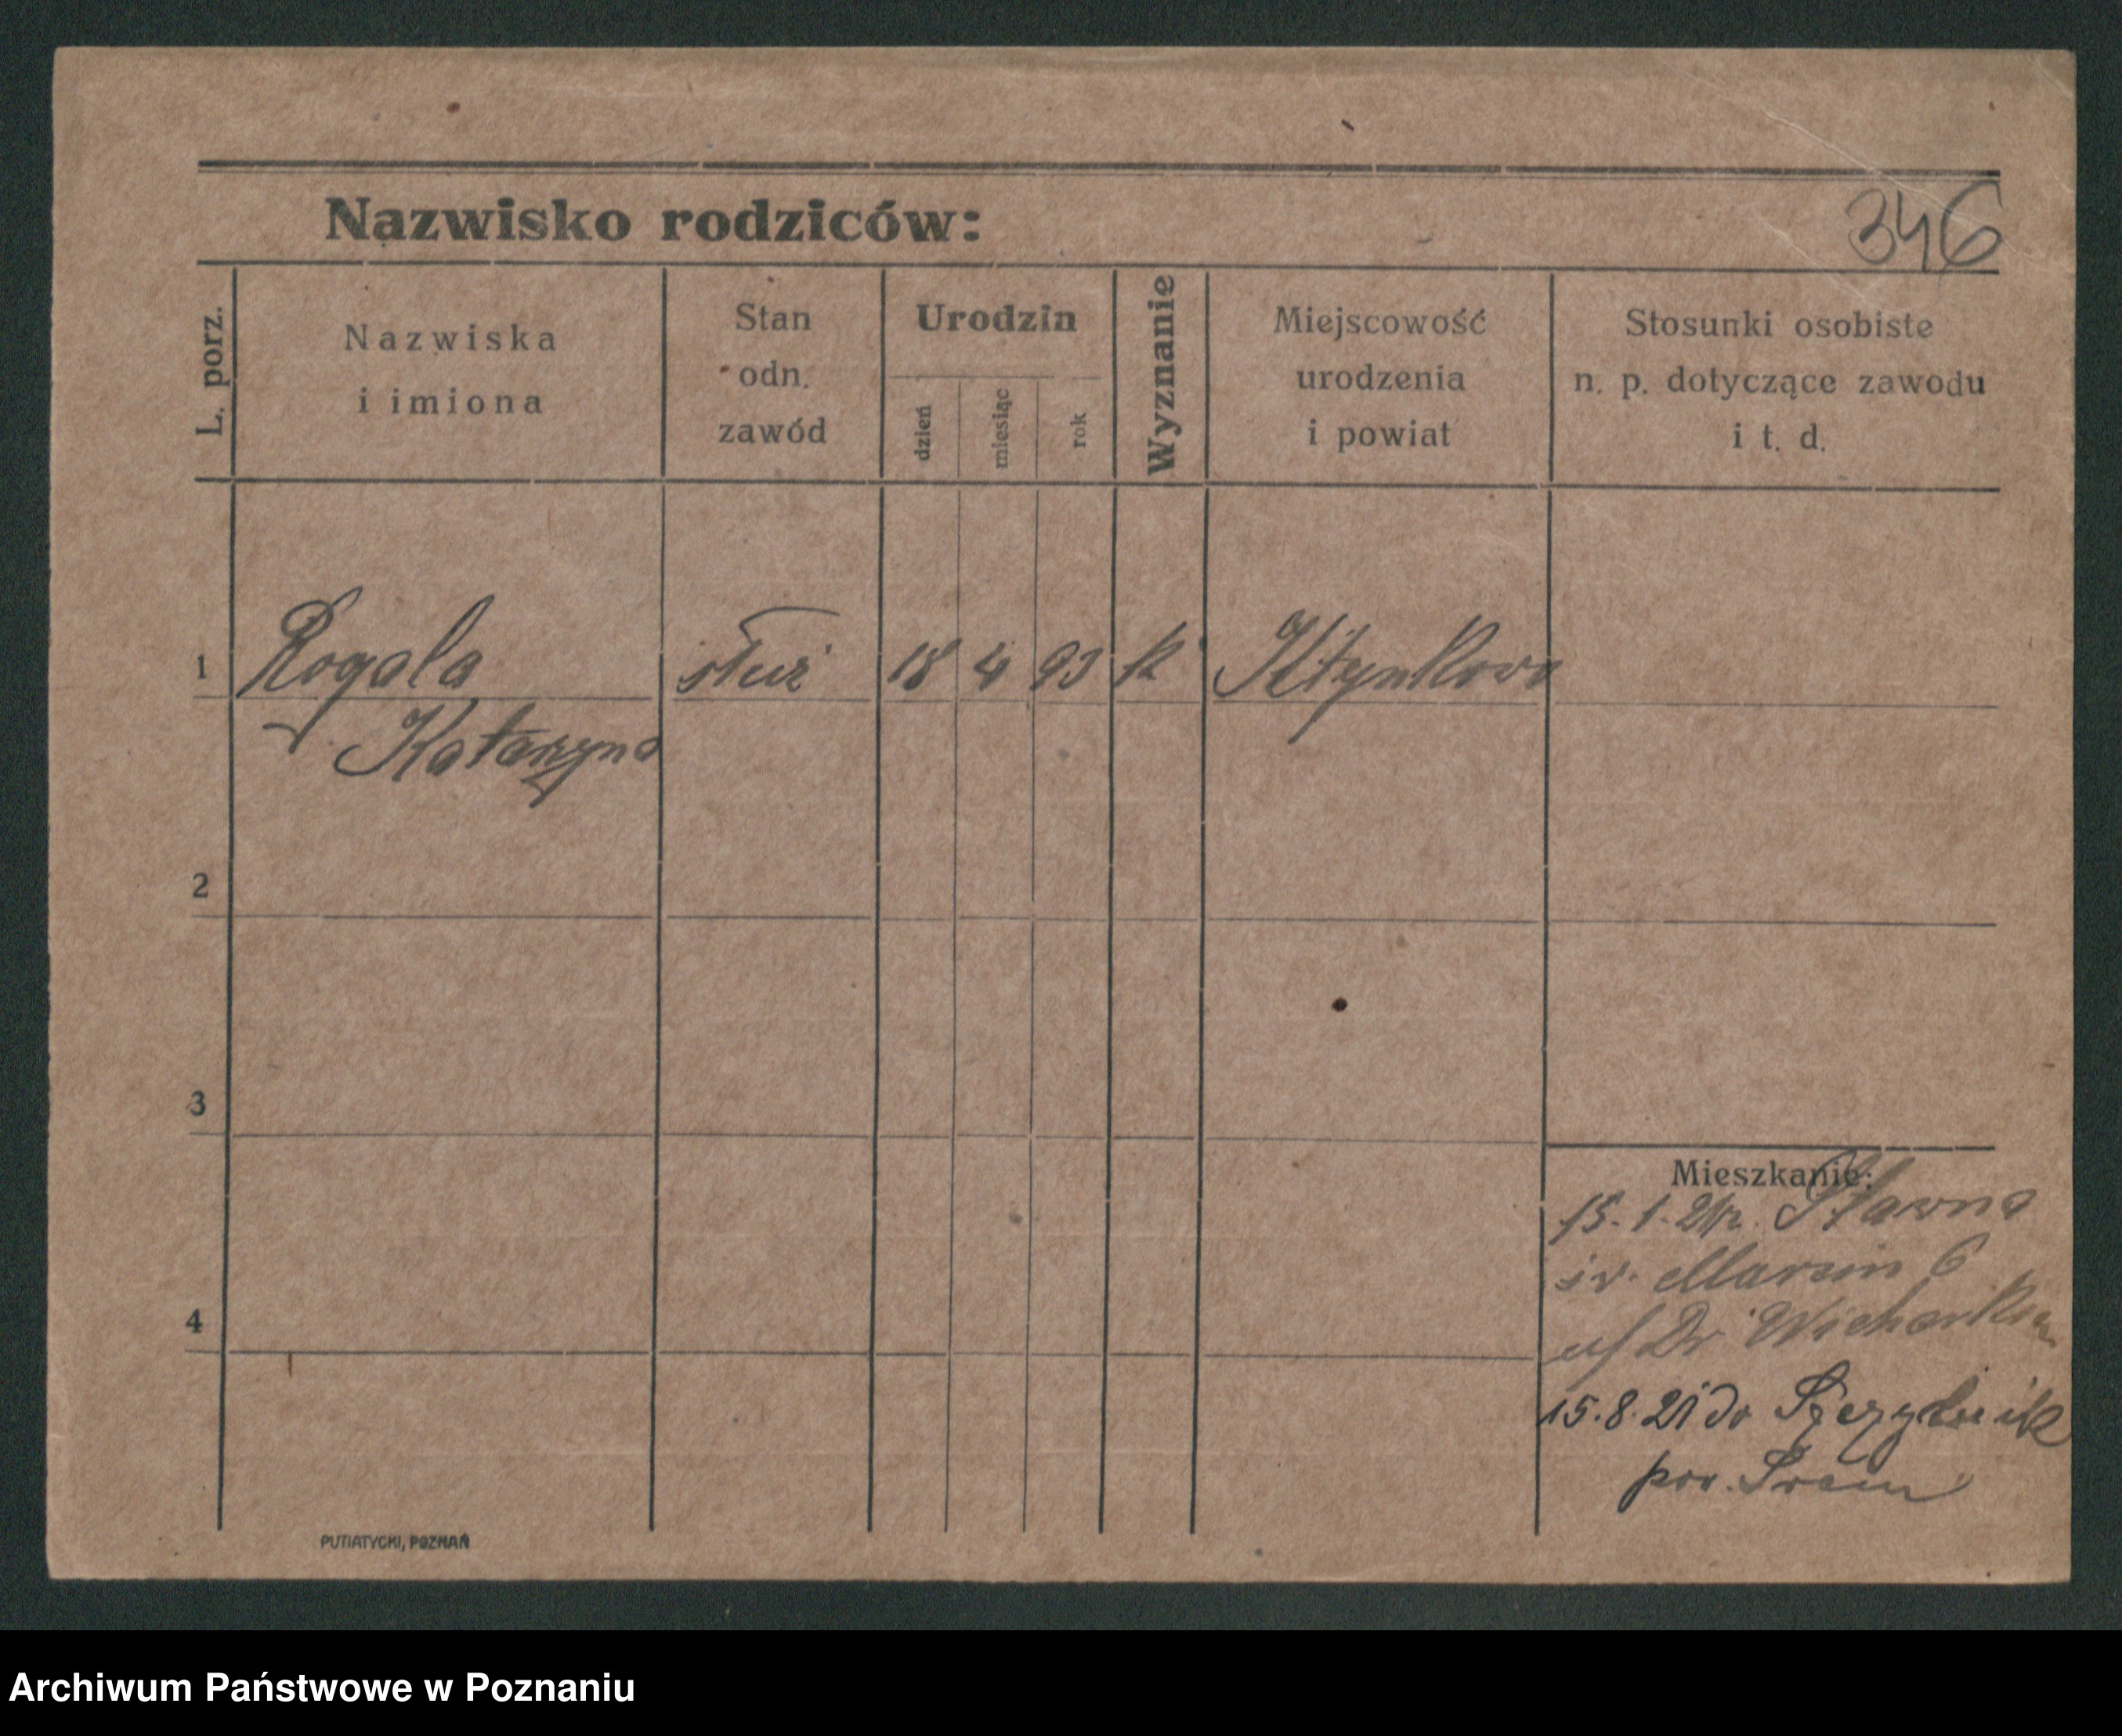 Nazwisko rodziców:
346
L. porz.
Nazwiska
i imiona
Stan
odn.
zawód
Urodzin
dzień
miesiąc
rok
Wyznanie
Miejscowość
urodzenia
i powiat
Stosunki osobiste
n. p. dotyczące zawodu
i t. d.
1 Rogala służ 18 4 93 k
Katarzyna
2
3
4
Mieszkanie:
15. 1. 21
św. Marcin 6
Dr
15. 8. 21 do
pow. Śrem
PUTIATYCKI, POZNAŃ
Archiwum Państwowe w Poznaniu